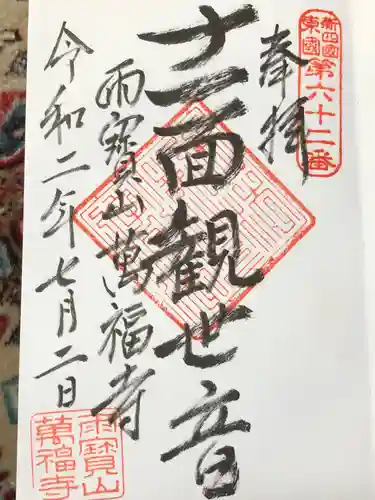 新四國
東國
第六十二番
奉拝
十一面観世音
雨寶山萬福寺
令和二年七月二日
雨寶山
萬福寺